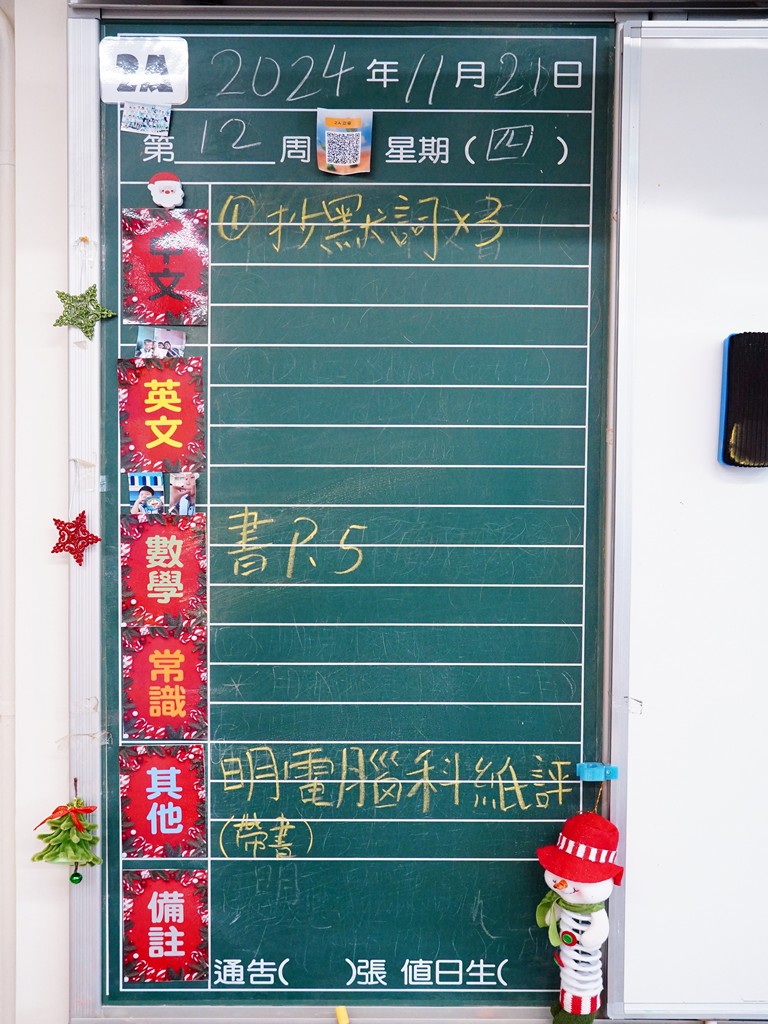 2A
2024年11月21日
第12周 星期(四)
中文
①抄默詞×3
英文
數學
書P.5
常識
其他
明電腦科紙評
(帶書)
備註
通告( )張 值日生(